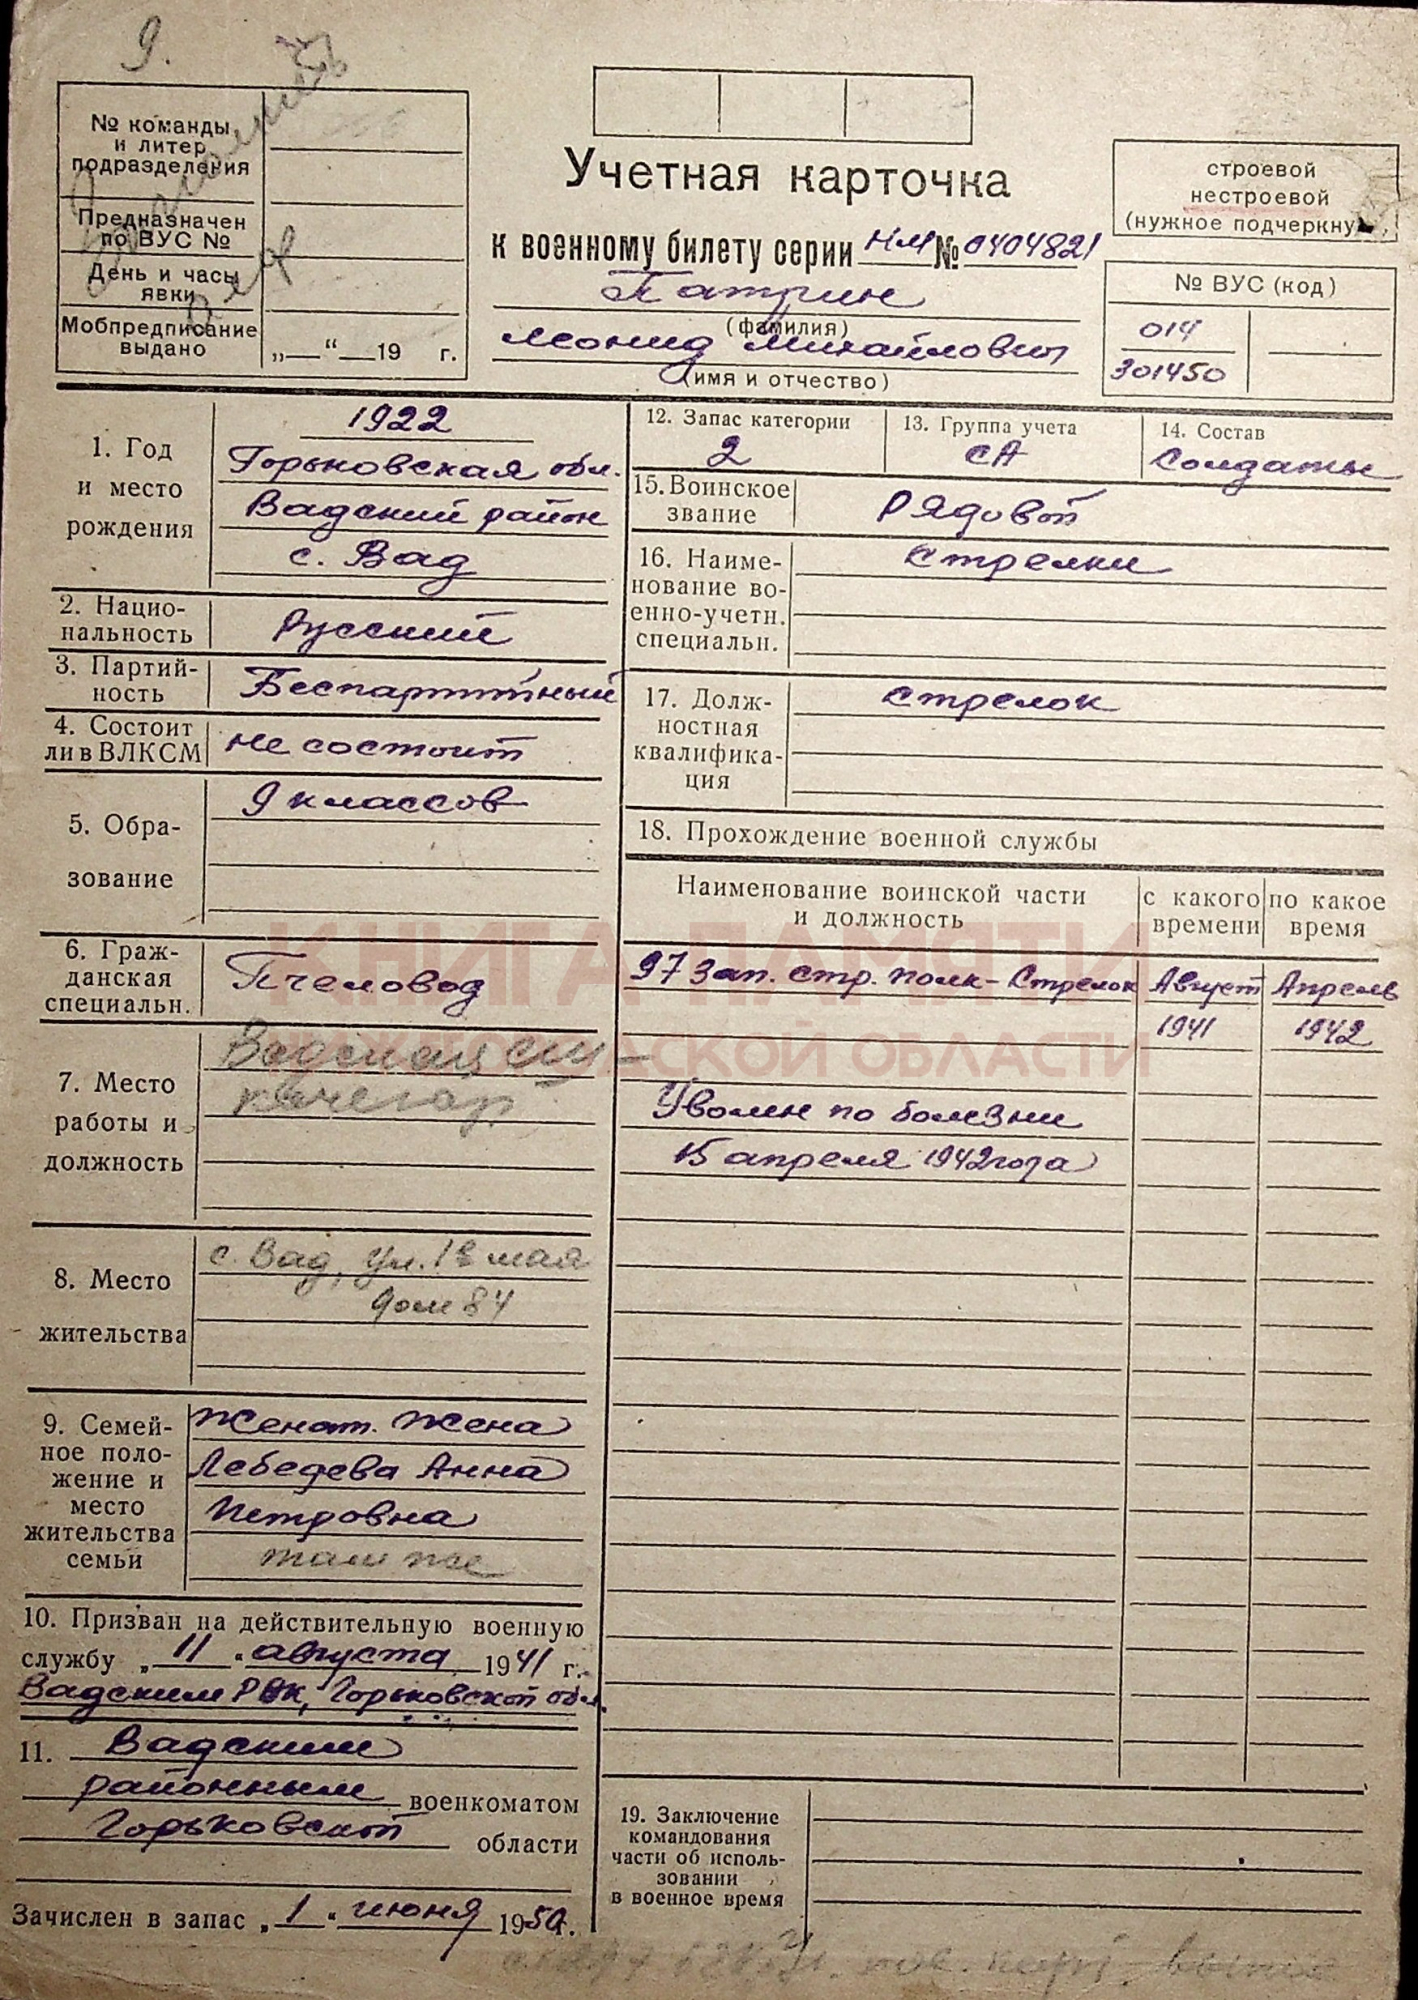 9.
№ команды
и литер
подразделения
Предназначен
по ВУС №
День и часы
явки
Мобпредписание
выдано
„ “ 19 г.
Учетная карточка
к военному билету серии НМ № 0404821
Патрин
(фамилия)
Леонид Михайлович
(имя и отчество)
строевой
нестроевой
(нужное подчеркнуть)
№ ВУС (код)
014
301450
1. Год
и место
рождения
1922
Горьковская обл.
Вадский район
с. Вад
2. Нацио-
нальность
Русский
3. Партий-
ность
Беспартийный
4. Состоит
ли в ВЛКСМ
не состоит
5. Обра-
зование
9 классов
6. Граж-
данская
специальн.
Пчеловод
7. Место
работы и
должность
кочегар
8. Место
жительства
с. Вад, ул. 1е мая
дом 84
9. Семей-
ное поло-
жение и
место
жительства
семьи
Женат. Жена
Лебедева Анна
Петровна
там же
10. Призван на действительную военную
службу „11“ августа 1941 г.
Вадским РВК, Горьковской обл.
11. Вадским
районным военкоматом
Горьковской области
Зачислен в запас „1“ июня 1950 г.
12. Запас категории
2
13. Группа учета
СА
14. Состав
Солдаты
15. Воинское
звание
Рядовой
16. Наиме-
нование во-
енно-учетн.
специальн.
Стрелки
17. Долж-
ностная
квалифика-
ция
Стрелок
18. Прохождение военной службы
Наименование воинской части
и должность
с какого
времени
по какое
время
97 Зап. стр. полк - Стрелок Август Апрель
1941 1942
Уволен по болезни
15 апреля 1942 года
19. Заключение
командования
части об исполь-
зовании
в военное время
КНИГА ПАМЯТИ
НИЖЕГОРОДСКОЙ ОБЛАСТИ